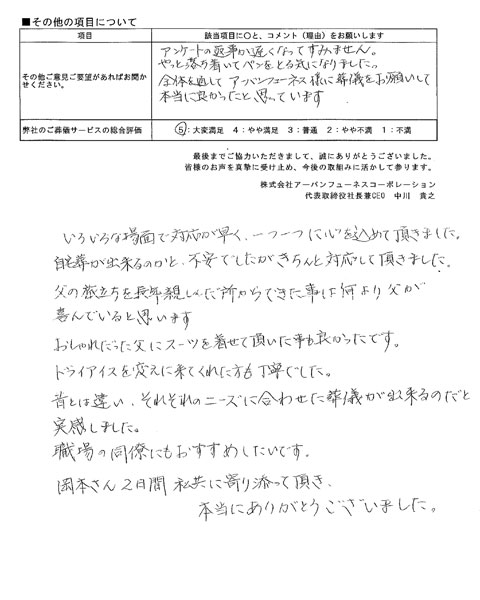 ■その他の項目について
項目
該当項目に○と、コメント（理由）をお願いします
その他ご意見ご要望があればお聞か
せください。
アンケートの返事が遅くなってすみません。
やっと落ち着いてペンをとる気になりました。
全体を通してアーバンフューネス様に葬儀をお願いして
本当に良かったと思っています
弊社のご葬儀サービスの総合評価
⑤：大変満足　4：やや満足　3：普通　2：やや不満　1：不満
最後までご協力いただきまして、誠にありがとうございました。
皆様のお声を真摯に受け止め、今後の取組みに活かして参ります。
株式会社アーバンフューネスコーポレーション
代表取締役社長兼CEO　中川　貴之
いろいろな場面で対応が早く、一つ一つに心を込めて頂きました。
自宅葬が出来るのかと、不安でしたがきちんと対応して頂きました。
父の旅立ちを長年親しんだ所からできた事は何より父が
喜んでいると思います
おしゃれだった父にスーツを着せて頂いた事も良かったです。
ドライアイスを変えに来てくれた方も丁寧でした。
昔とは違い、それぞれのニーズに合わせた葬儀が出来るのだと
実感しました。
職場の同僚にもおすすめしたいです。
岡本さん2日間私共に寄り添って頂き、
本当にありがとうございました。